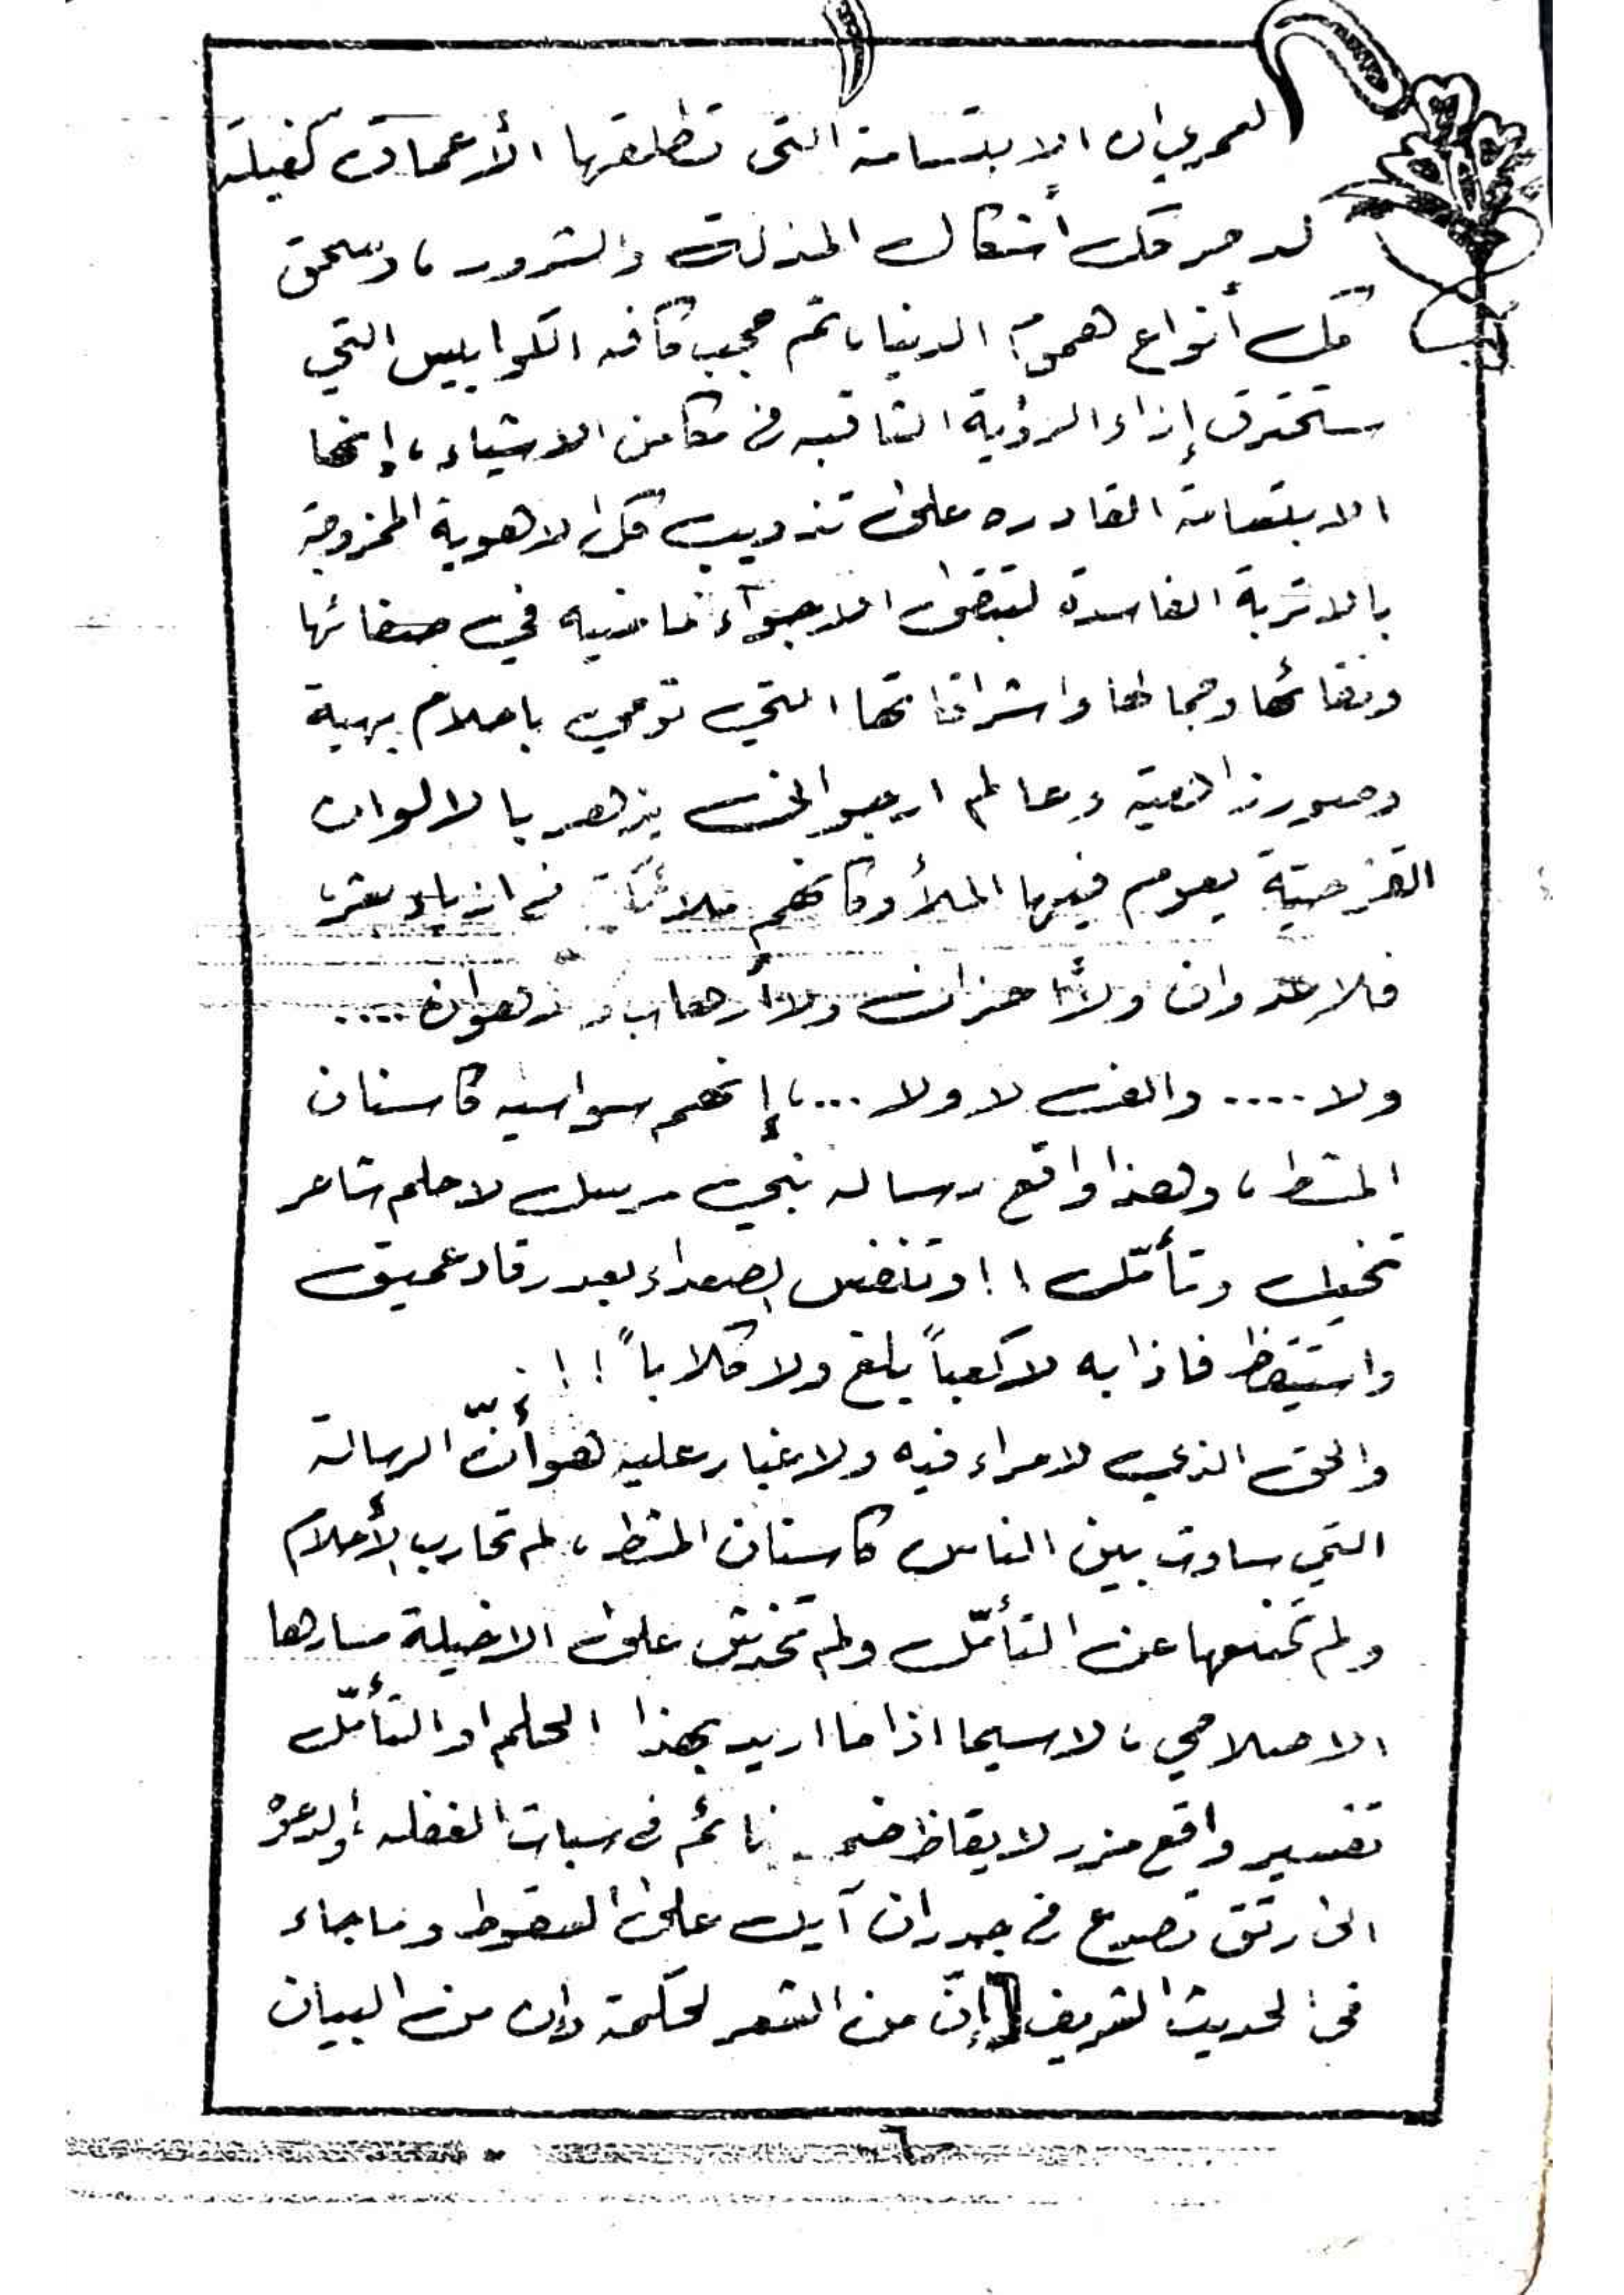 لعمري ان الابتسامة التي تطلقها الأعماق كفيلة
لدحر كل أشكال المذلة والشرور، وسحق
كل أنواع هموم الدنيا، ثم حجب كافه الكوابيس التي
ستخترق إزاء الرؤية الثاقبه في مكامن الاشياء، إنها
الابتسامة القادره على تذويب كل الاهوية الممزوجة
بالاتربة الفاسدة لتبقى الاجواء غافيه في صفائها
ونقائها وجمالها واشراقاتها التي توحي باحلام بهية
وصور زاهية وعالم ارجواني يزهر بالالوان
القزحية يعوم فيها الملأ وكأنهم ملائكة في ازياء بشر،
فلا عدوان ولا أحزان ولا أرهاب و هوان ....
ولا .... والف لا ولا ...، إنهم سواسيه كاسنان
المشط، وهذا واقع رساله نبي مرسل لا حلم شاعر
تخيل وتأمّل !! وتنفس الصعداء بعد رقاد عميق
واستيقظ فاذا به لا كعباً بلغ ولا كلاباً !!
والحق الذي لا مراء فيه ولا غبار عليه هو أنّ الرسالة
التي ساوت بين الناس كاسنان المشط، لم تحارب الأحلام
ولم تمنعها عن التأمّل ولم تخدش على الاخيلة مسارها
الاصلاحي، لاسيما اذا ما اريد بهذا الحلم او التأمّل
تفسير واقع مزر لايقاظ نائم في سبات الغفله، أو لدعوة
الى رتق تصدع في جدران آيل على السقوط وما جاء
في الحديث الشريف [إنّ من الشعر لحكمة وإن من البيان
٦